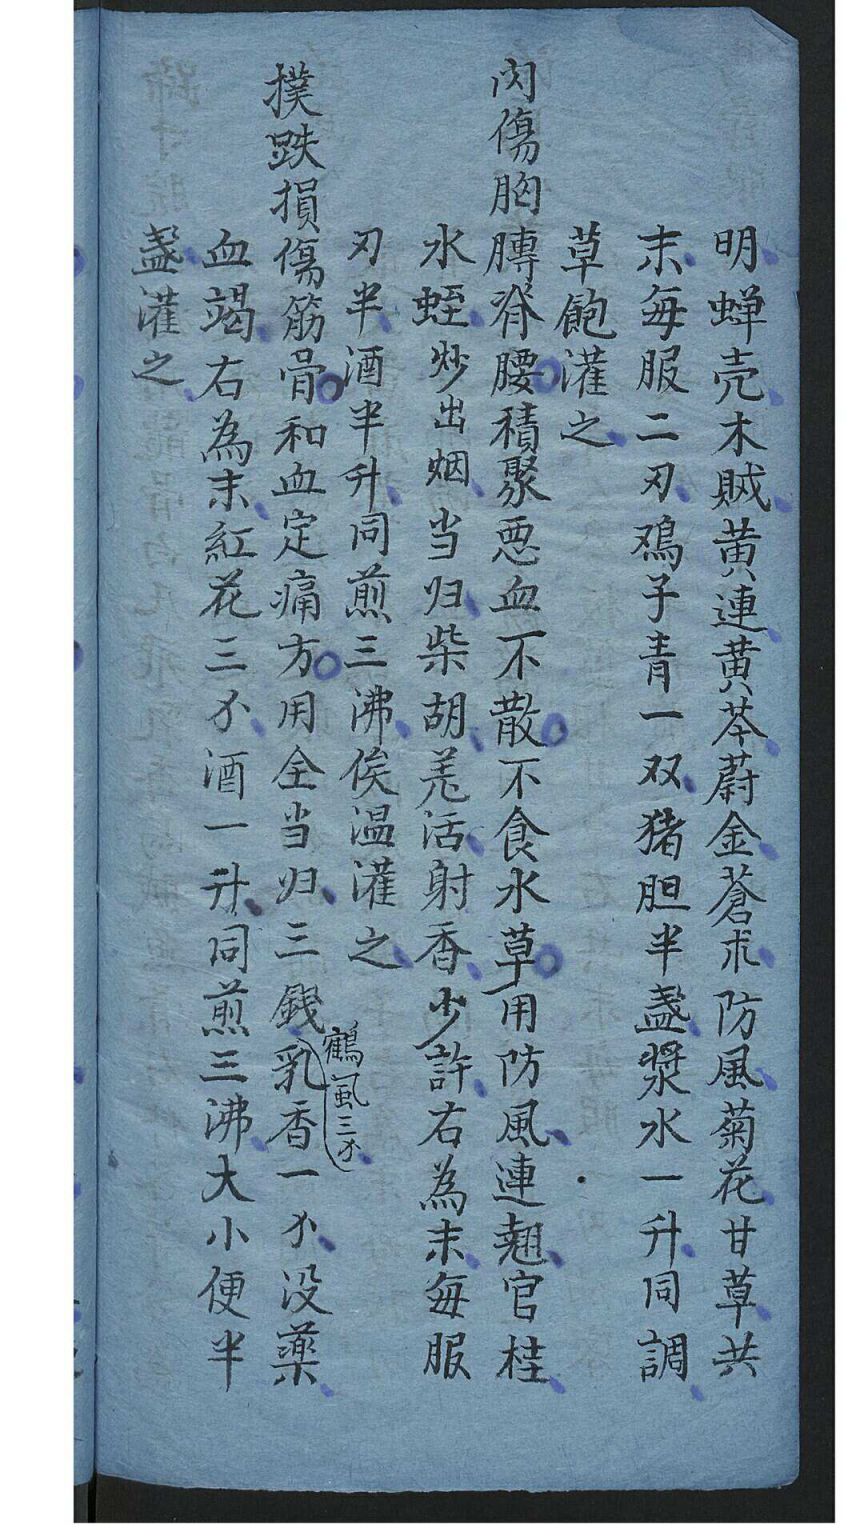 明蝉壳木賊黄連黄芩蔚金蒼朮防風菊花甘草共
末每服二刃鴂子青一双猪胆半盞漿水一升同調
草飽灌之
内傷胸膊脊腰積聚悪血不散不食水草用防風連翹官桂
水蛭炒出烟当归柴胡羌活射香少許右為末每服
刃半酒半升同煎三沸俟温灌之
鶴風三分
撲跌損傷筋骨和血定痛方用全当归三錢乳香一分没藥
血竭右為末紅花三分酒一升同煎三沸大小便半
盞灌之